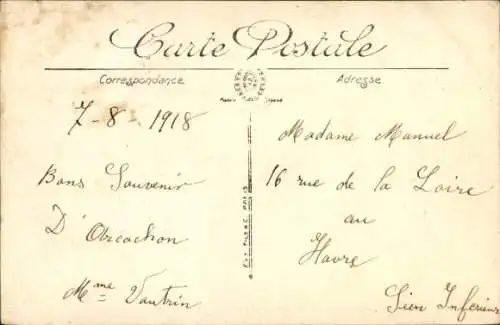 Carte Postale
Correspondance
Adresse
7-8-1918
Bons Souvenir
D'Arcachon
Mme Vautrin
Madame Manuel
16 rue de la Loire
au
Havre
Sien Inferieur